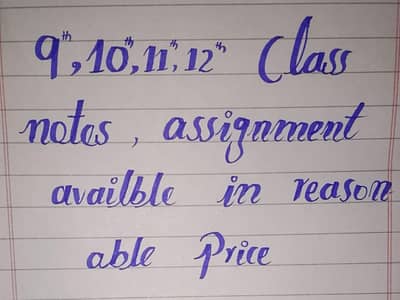 9th, 10th, 11th, 12th Class
notes , assignment
availble in reason
able Price